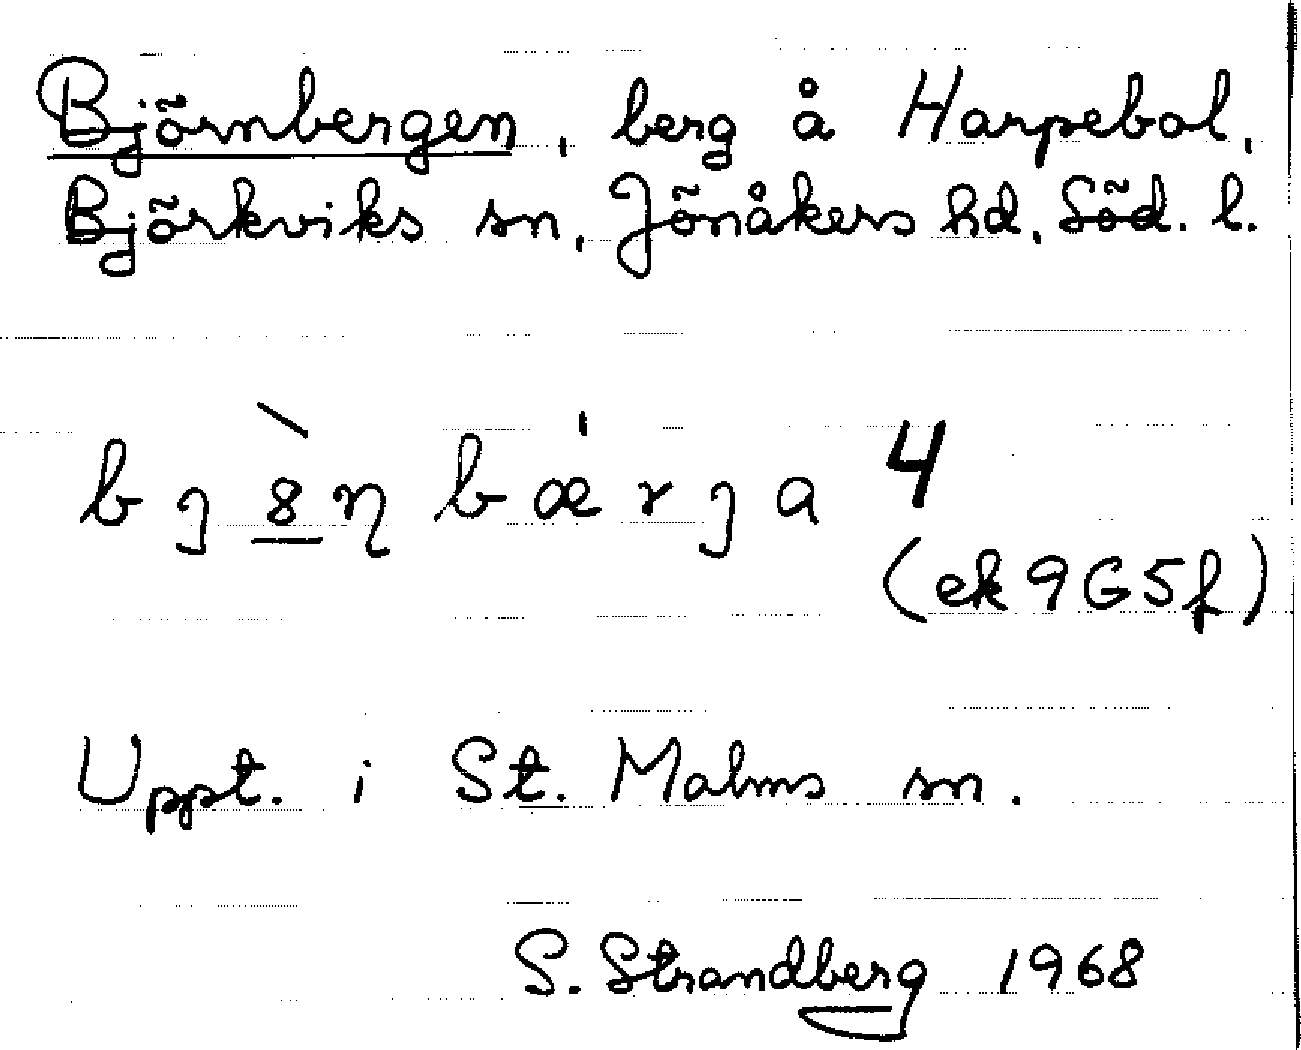 Björnbergen, berg å Harpebol,
Björkviks sn, Jönåkers hd, Söd. l.
bȷ8̲̀ŋbæ̍rȷa 4
(ek 9G5f)
Uppt. i St. Malms sn.
S. Strandberg 1968